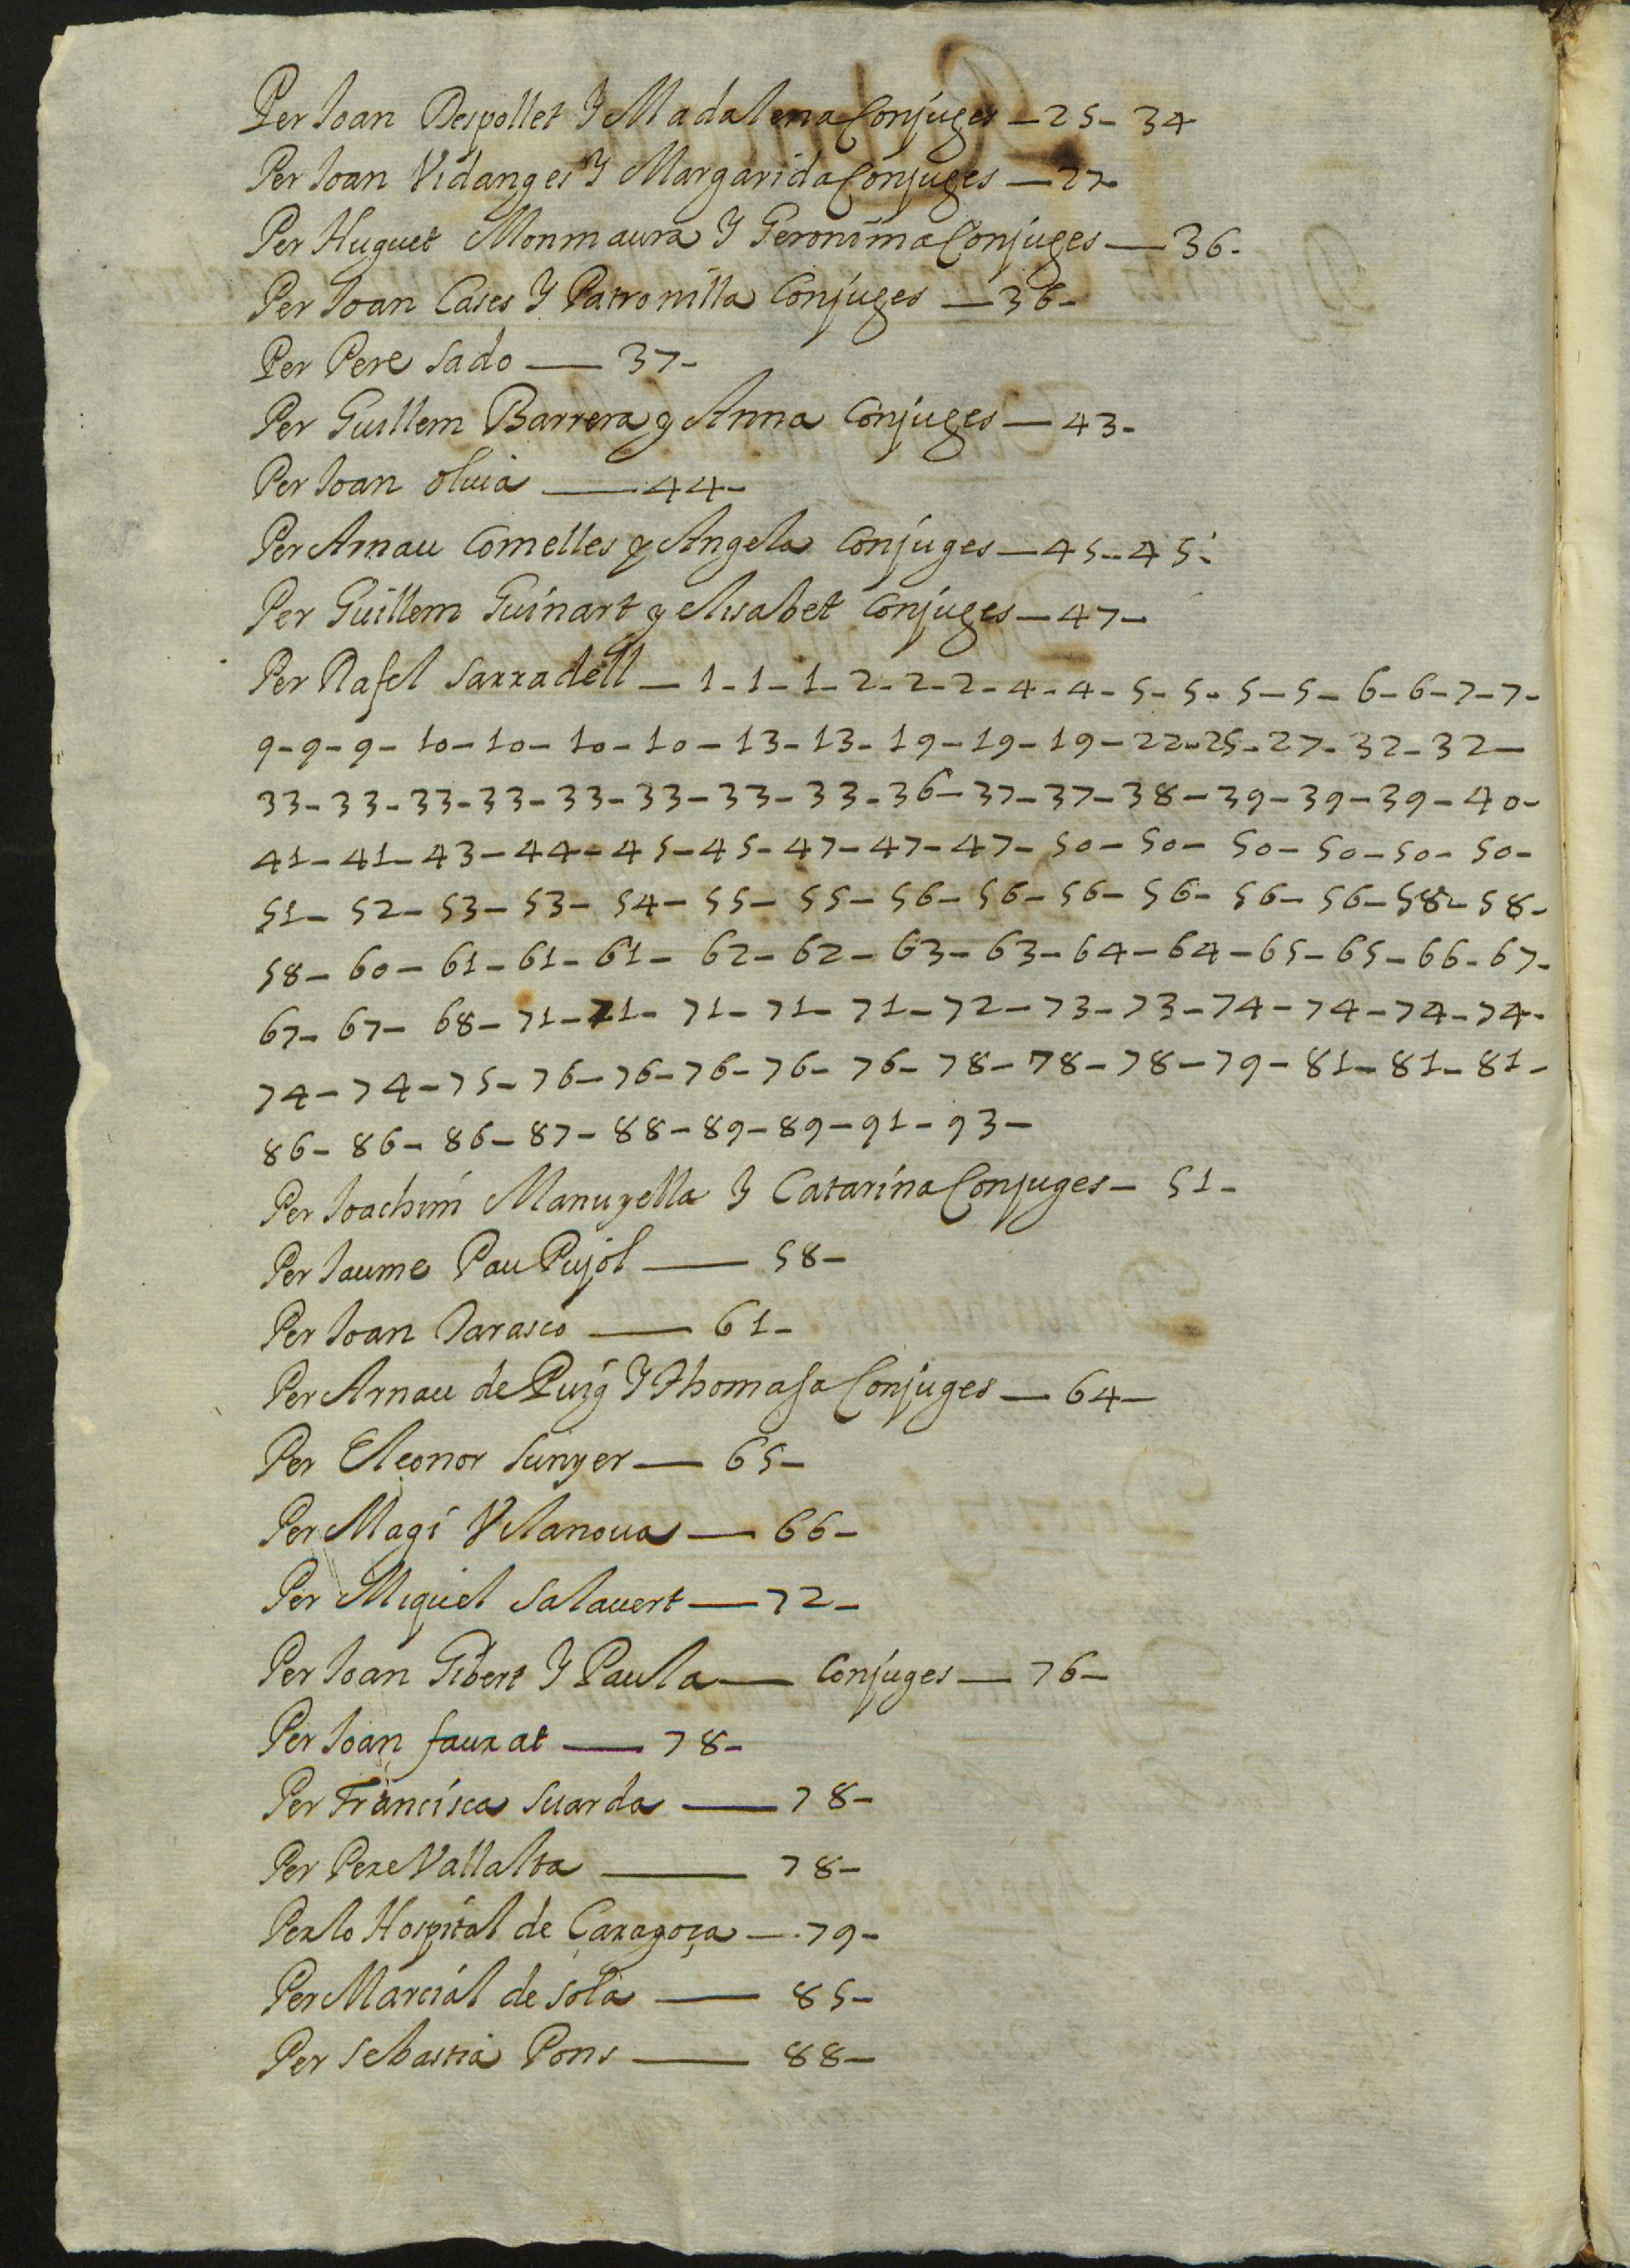 Per Ioan Despollet Y Madalena Conjuges — 25 - 34
Per Ioan Vidanges Y Margarida Conjuges — 27
Per Huguet Monmaura Y Geronima Conjuges — 36 -
Per Ioan Cases Y Patronilla Conjuges — 36 -
Per Pere Sado — 37 -
Per Guillem Barrera y Anna Conjuges — 43 -
Per Ioan oluia — 44 -
Per Arnau Comelles y Angela Conjuges — 45 - 45 -
Per Guillem Guinart y Elisabet Conjuges — 47 -
Per Rafel Sarradell — 1 - 1 - 1 - 2 - 2 - 2 - 4 - 4 - 5 - 5 - 5 - 5 - 6 - 6 - 7 - 7 -
9 - 9 - 9 - 10 - 10 - 10 - 10 - 13 - 13 - 19 - 19 - 19 - 22 - 25 - 27 - 32 - 32 -
33 - 33 - 33 - 33 - 33 - 33 - 33 - 33 - 36 - 37 - 37 - 38 - 39 - 39 - 39 - 40 -
41 - 41 - 43 - 44 - 45 - 45 - 47 - 47 - 47 - 50 - 50 - 50 - 50 - 50 - 50 -
51 - 52 - 53 - 53 - 54 - 55 - 55 - 56 - 56 - 56 - 56 - 56 - 56 - 58 - 58 -
58 - 60 - 61 - 61 - 61 - 62 - 62 - 63 - 63 - 64 - 64 - 65 - 65 - 66 - 67 -
67 - 67 - 68 - 71 - 71 - 71 - 71 - 71 - 72 - 73 - 73 - 74 - 74 - 74 - 74 -
74 - 74 - 75 - 76 - 76 - 76 - 76 - 76 - 78 - 78 - 78 - 79 - 81 - 81 - 81 -
86 - 86 - 86 - 87 - 88 - 89 - 89 - 91 - 93 -
Per Ioachim Manuyella Y Catarina Conjuges - 51 -
Per Iaume Pau Pujol — 58 -
Per Ioan Tarasco — 61 -
Per Arnau de Puig Y Thomasa Conjuges — 64 -
Per Eleonor Sunyer — 65 -
Per Magi Vilanoua — 66 -
Per Miquel Salauert — 72 -
Per Ioan Gibert Y Paula — Conjuges — 76 -
Per Ioan faurat — 78 -
Per Francisca Suarda — 78 -
Per Pere Vallalta — 78 -
Per lo Hospital de Çaragoça — 79 -
Per Marcial de Sola — 85 -
Per Sebastia Pons — 88 -